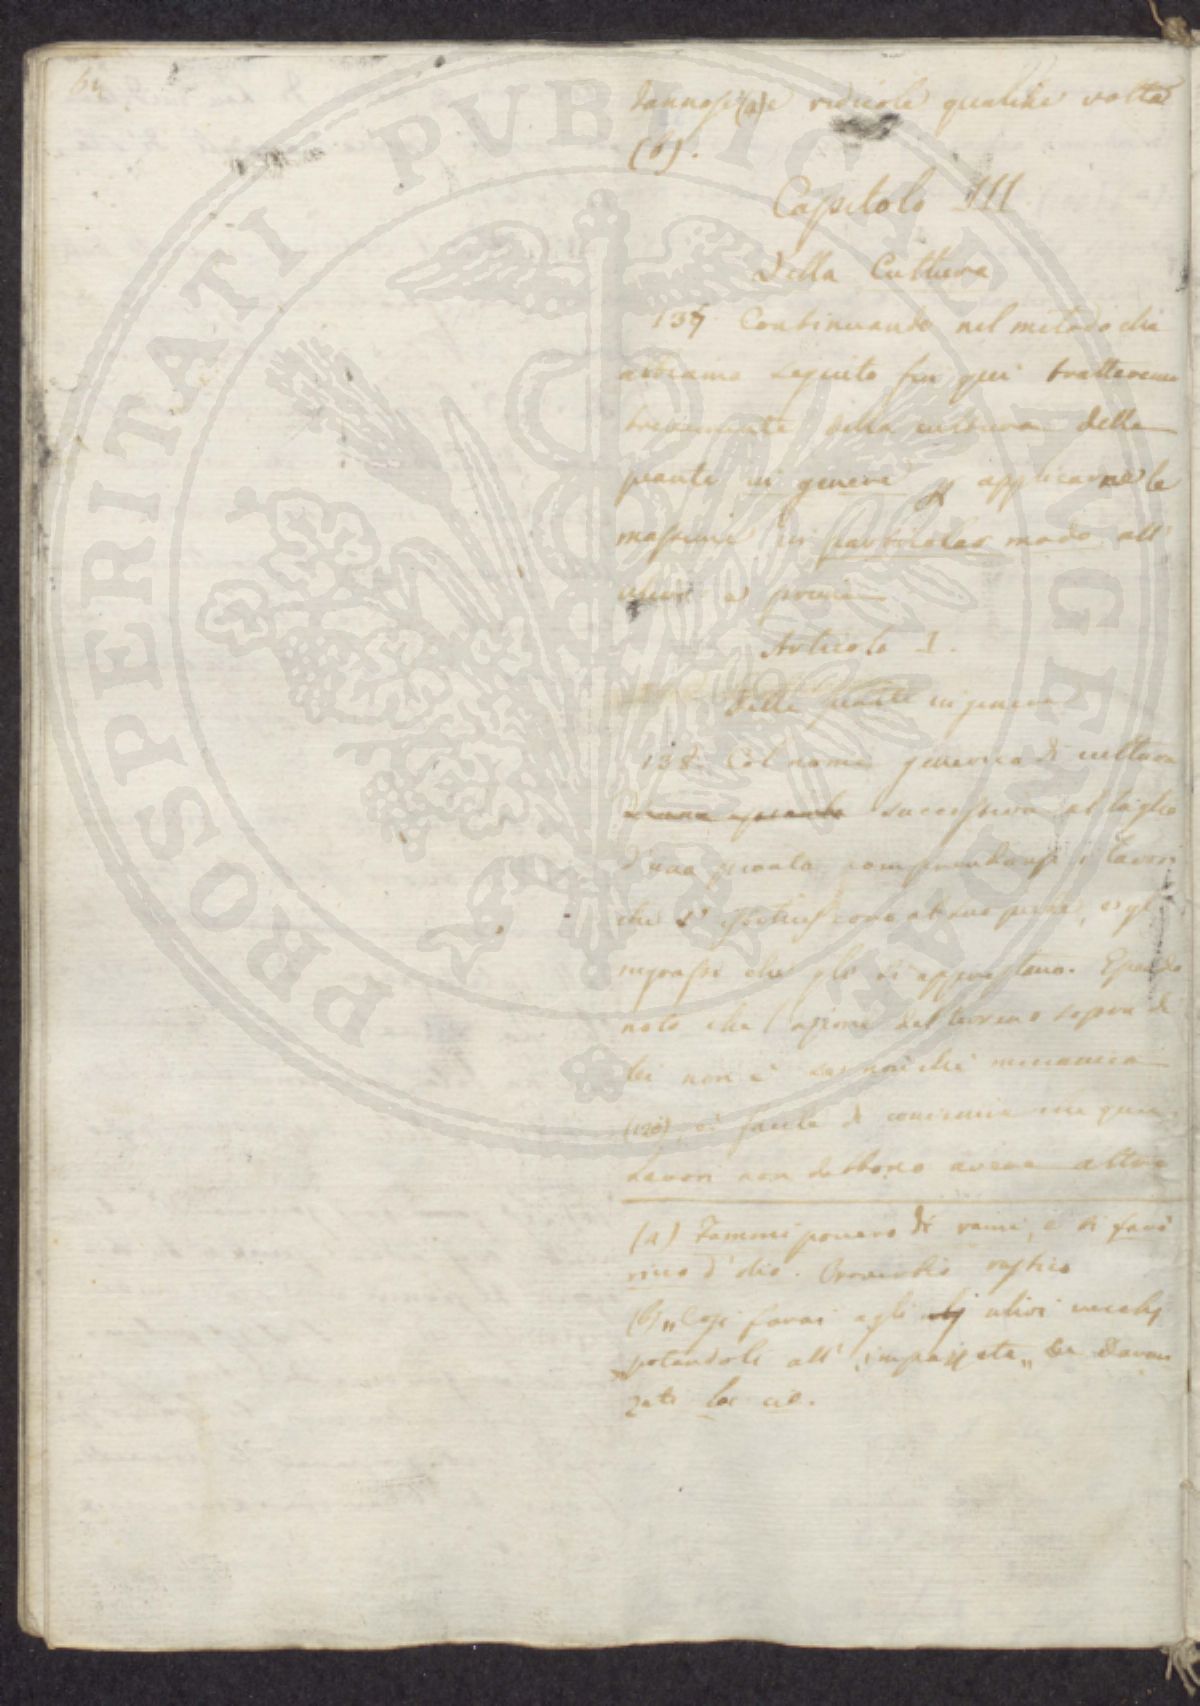 64
dannosi (a) e ridicole qualche volta
(b).
Capitolo III
Della Cultura
137 Continuando nel metodo che
abbiamo seguito fin qui tratteremo
brevemente della cultura delle
piante in genere p applicarne le
massime in particolar modo all'
ulivo
Articolo I.
Delle piante in genere
138. Col nome generico di cultura
successiva al taglio
d'una pianta comprendansi i lavori
che s' al suo piede, e gl'
ingrassi che gli si apprestano. Essendo
noto che l azione del terreno sopra di
lei non è se non che meccanica
(120), è facile di convenire che quei
lavori non debbono avere altro
(a) Fammi povero di rami, e ti farò
ricco d'olio. Proverbio rustico
(b) „ Così farai agli ulivi vecchj
potandoli all' impazzata „ Davan
zati loc cit.
PROSPERITATI PVBLICAE AVGENDAE